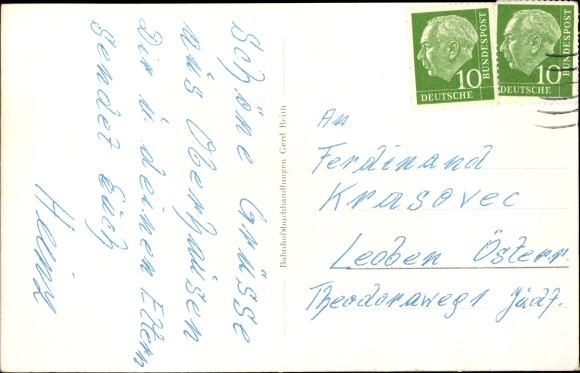 Schöne Grüsse
aus Oberhausen
Dir u deinen Eltern
sendet Euch
Heinz
Bahnhofsbuchhandlungen Gerd Reith
10
DEUTSCHE
BUNDESPOST
10
DEUTSCHE
BUNDESPOST
An
Ferdinand
Krasovec
Leoben Österr.
Theodoraweg 1 Jüdf.